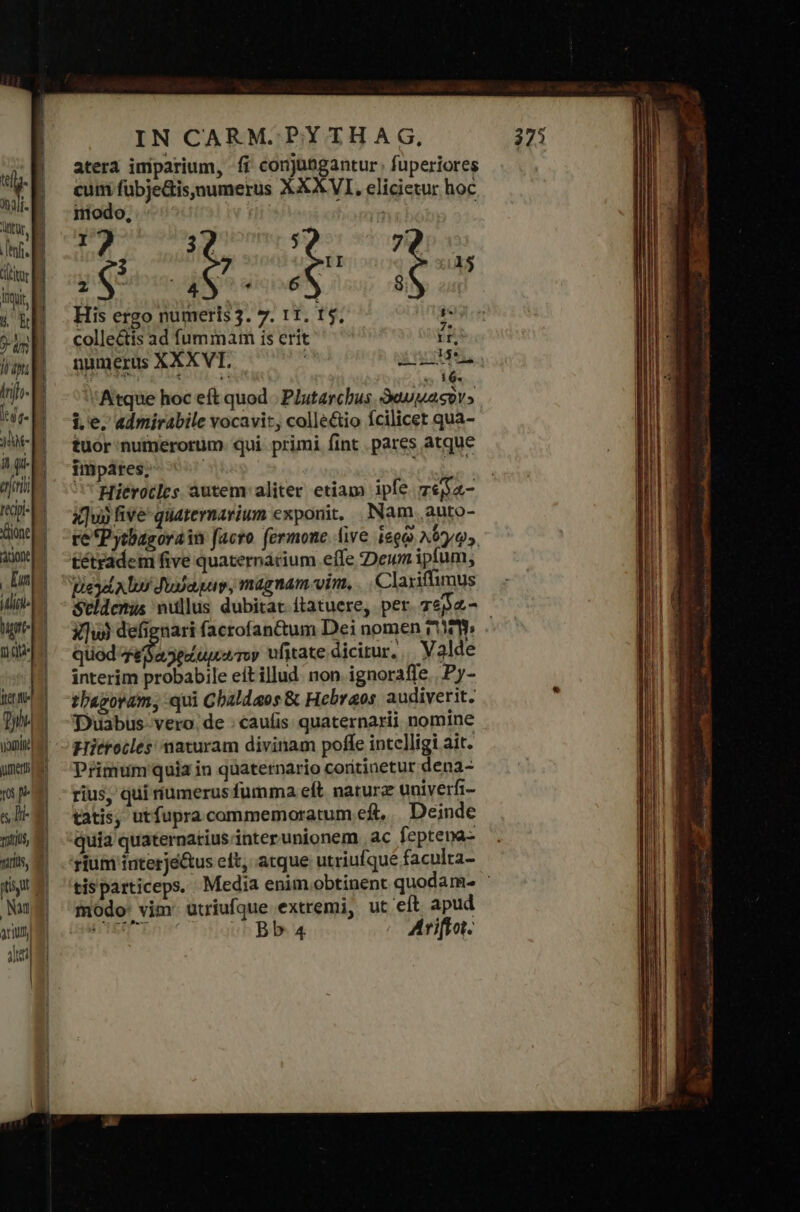 IN CARM. PYTHAG. 375
atera imparium, ſi conjungantur ſuperiores
cum ſubjectis, numerus XXXVI. elicietur hoc
modo,
1 3 5 7
3 7 11 15
2 4 6 8
His ergo numeris 3. 7. 11. 15. 3.
collectis ad ſummam is erit 7.
11.
numerus XXXVI. 15.
Atque hoc eſt quod Plutarchus θαυμαςὸν,
i. e. admirabile vocavit, collectio ſcilicet qua-
tuor numerorum qui primi ſint pares atque
impares.
Hierocles autem aliter etiam ipſe τετρα-
κτὺν ſive quaternarium exponit. Nam auto-
re Pythagora in ſacro ſermone ſive ἱερῷ λόγῳ,
tetradem ſive quaternarium eſſe Deum ipſum,
μεγάλην δύναμιν, magnam vim. Clariſſimus
Seldenus nullus dubitat ſtatuere, per τετρα-
κτὺν deſignari ſacroſanctum Dei nomen יהוה,
quod τετραγράμματον uſitate dicitur. Valde
interim probabile eſt illud non ignoraſſe Py-
thagoram, qui Chaldæos & Hebræos audiverit.
Duabus vero de cauſis quaternarii nomine
Hierocles naturam divinam poſſe intelligi ait.
Primum quia in quaternario continetur dena-
rius, qui numerus ſumma eſt naturæ univerſi-
tatis, ut ſupra commemoratum eſt. Deinde
quia quaternarius inter unionem ac ſeptena-
rium interjectus eſt, atque utriuſque faculta-
tis particeps. Media enim obtinent quodam-
modo vim utriuſque extremi, ut eſt apud
Bb 4 Ariſtot.